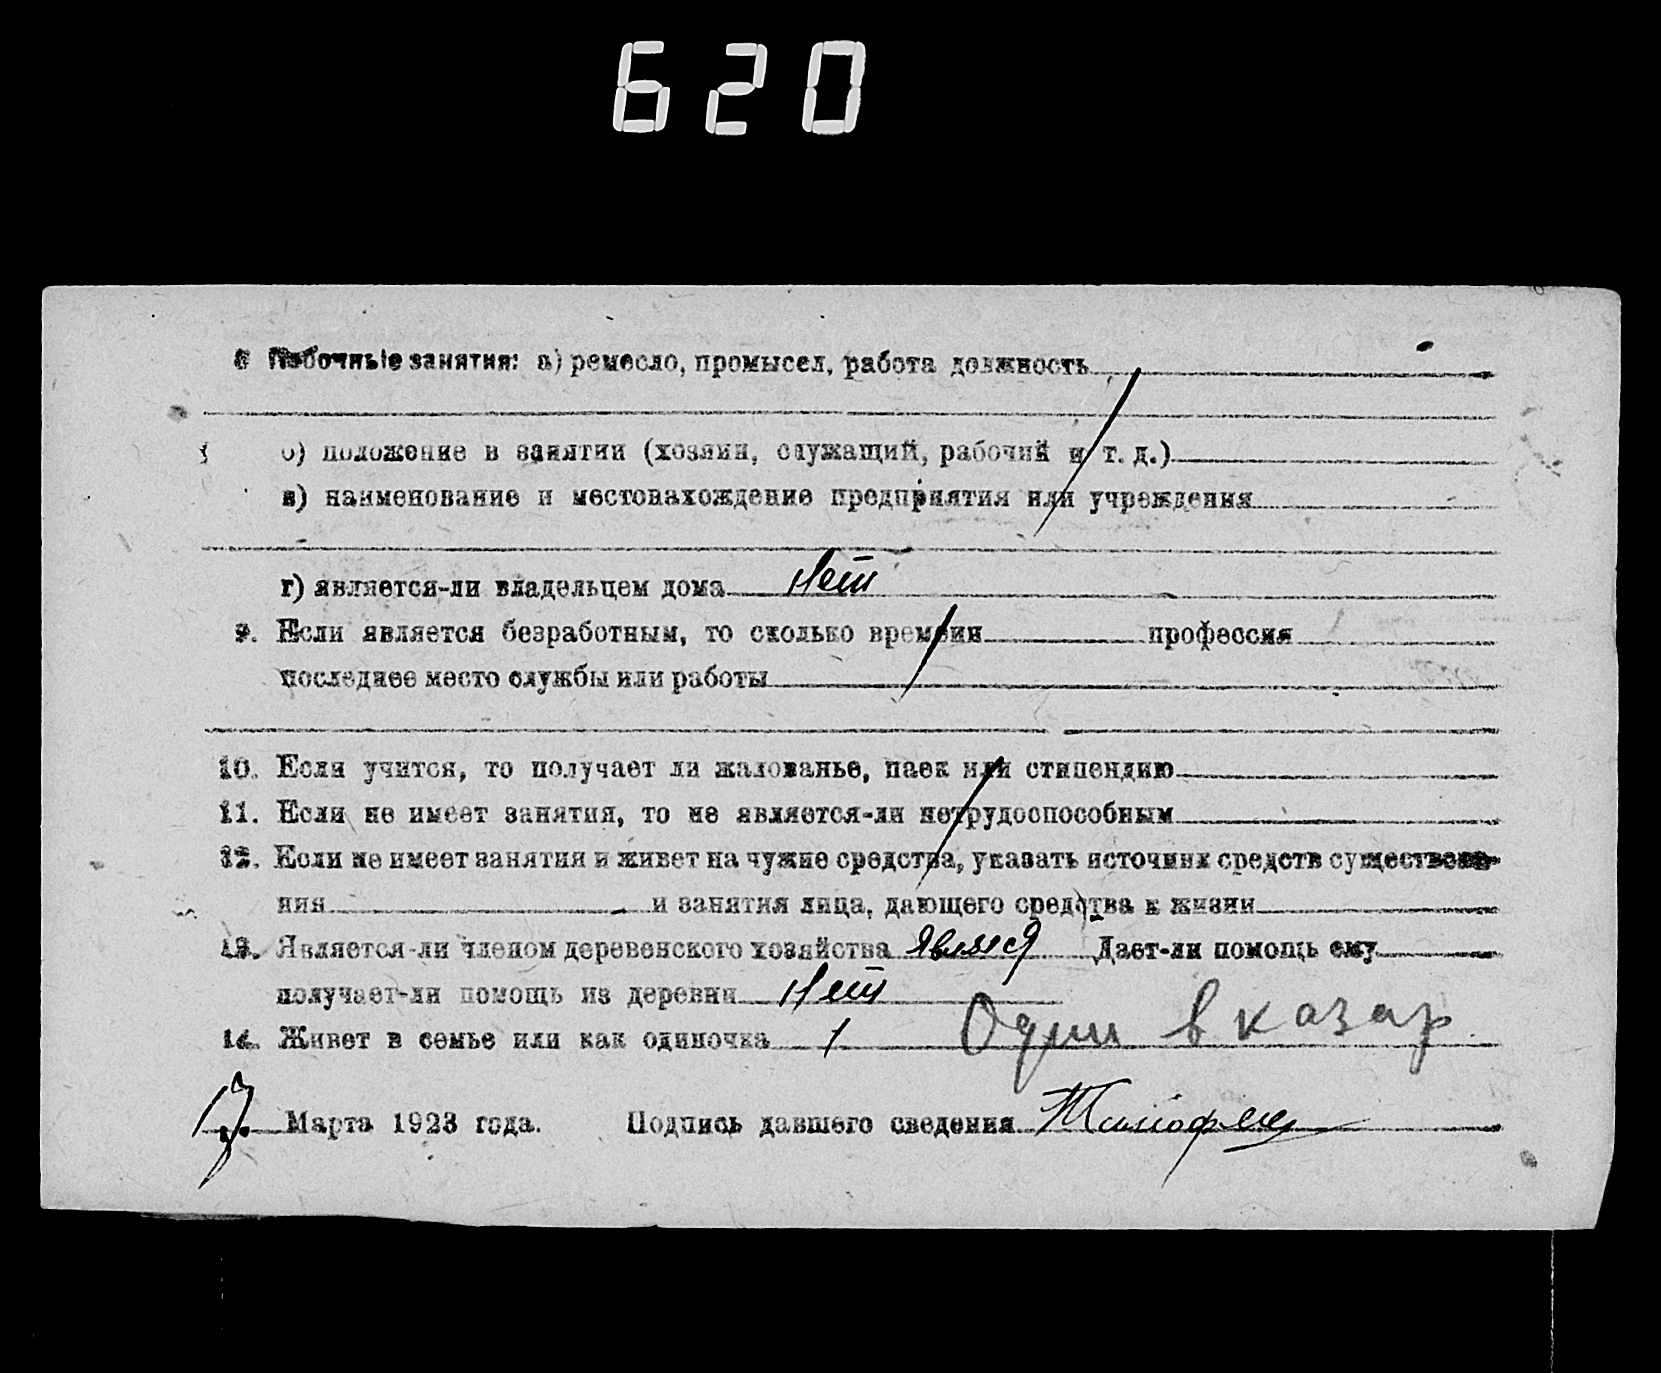 620
8 Побочные занятия: а) ремесло, промысел, работа должность
б) положение в занятии (хозяин, служащий, рабочий и т. д.)
в) наименование и местонахождение предприятия или учреждения
г) является-ли владельцем дома Нет
9. Если является безработным, то сколько времени профессия
последнее место службы или работы
10. Если учится, то получает ли жалованье, паек или стипендию
11. Если не имеет занятия, то не является-ли нетрудоспособным
12. Если не имеет занятия и живет на чужие средства, указать источник средств существова-
ния и занятия лица, дающего средства к жизни
13. Является-ли членом деревенского хозяйства Являюся Дает-ли помощь ему
получает-ли помощь из деревни Нет
14. Живет в семье или как одиночка Один в казар
17. Марта 1923 года. Подпись давшего сведения